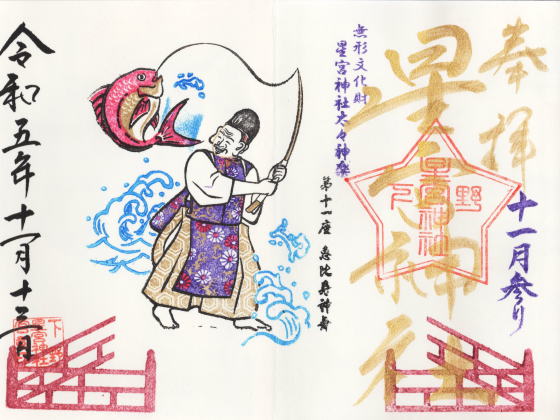 奉拝
十一月参り
星宮神社
下野
星宮神社
無形文化財
星宮神社太々神楽
第十一座 恵比寿神舞
令和五年十一月十三日
下野
星宮神社